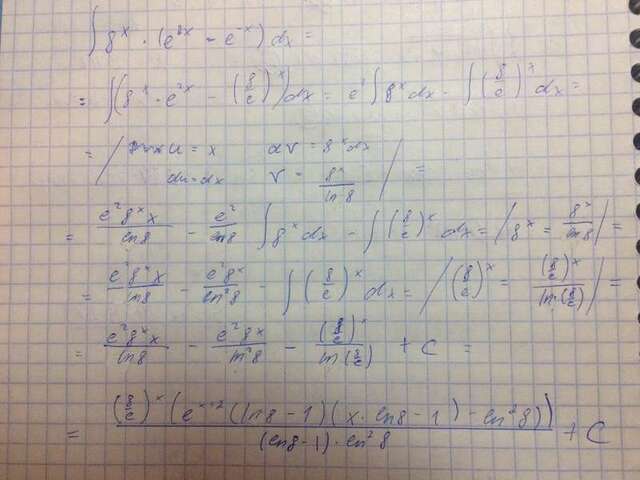 ∫ 8^x · (e^{2x} - e^{-x}) dx =
= ∫(8^x · e^{2x} - (8/e)^x) dx = e^2 ∫ 8^x dx - ∫ (8/e)^x dx =
= / u = x dv = 8^x dx
du = dx v = 8^x/ln8 / =
= e^2 8^x x/ln8 - e^2/ln8 ∫ 8^x dx - ∫ (8/e)^x dx = / 8^x = 8^x/ln8 / =
= e^2 8^x x/ln8 - e^2 8^x/ln^2 8 - ∫ (8/e)^x dx = / (8/e)^x = (8/e)^x/ln(8/e) / =
= e^2 8^x x/ln8 - e^2 8^x/ln^2 8 - (8/e)^x/ln(8/e) + C =
= (8/e)^x (e^{x+2} ((ln8 - 1)(x · ln8 - 1) - ln^2 8))/(ln8 - 1) · ln^2 8 + C